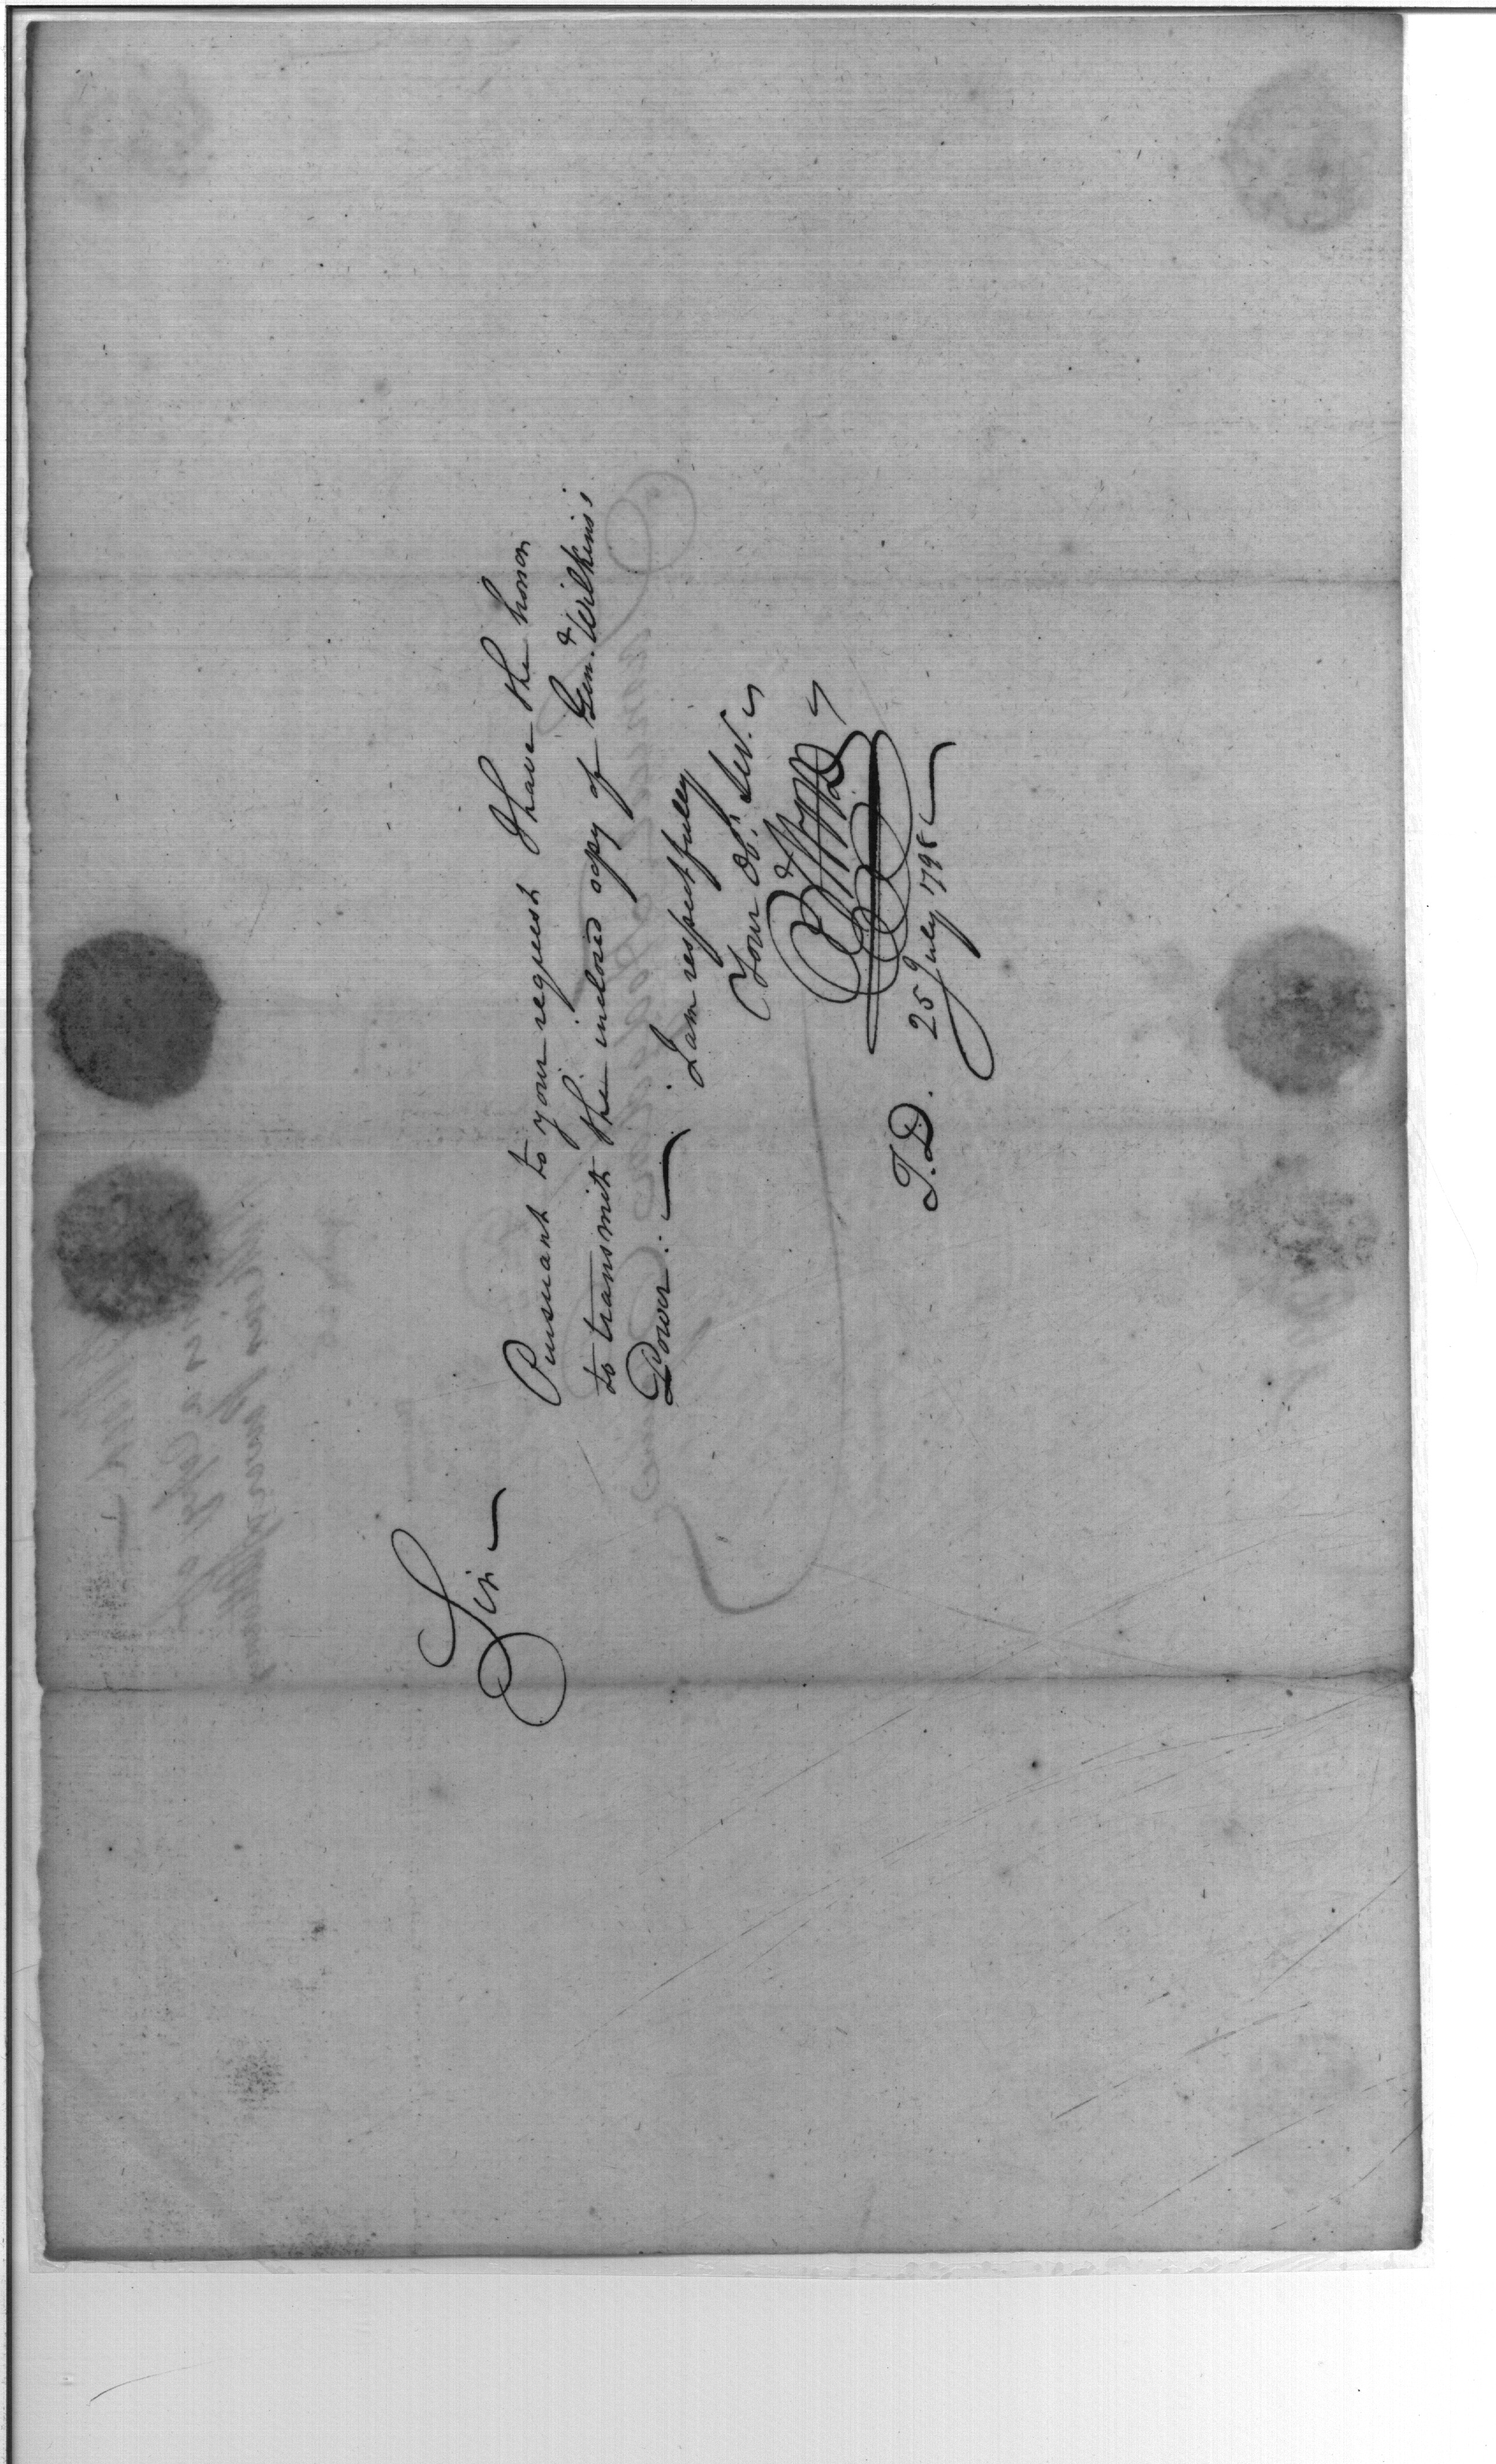 Sir
Pursuant to your request I have the honor
to transmit the inclosed copy of Genl. Wilkins's
Power.
I am respectfully
Your Obt. Sert.
T.D. 25 July 1798